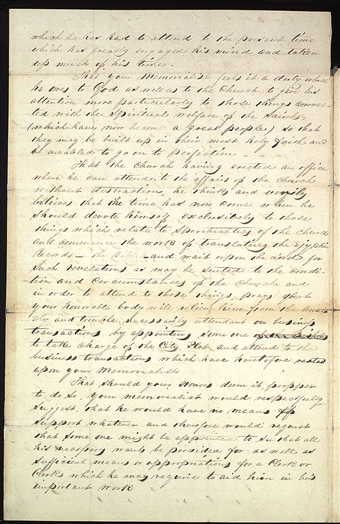 which he has had to attend to the present time
which has greatly engaged his mind and taken
up much of his time.
That your Memorialist feels it a duty which
he owes to God as well as to the Church to give his
attention more particularly to those things connec-
ted with the Spiritual welfare of the Saints
(which have now become a great people) so that
they may be built up in their most holy faith and
be enabled to go on to perfection—
That the Church having erected an office
where he can attend to the affairs of the Church
without distraction, he thinks and verily
believes that the time has now come when he
should devote himself exclusively to those
things which relate to Spiritualities of the church
and commence the work of translating the Egyptian
Records — the Bible — and wait upon the Lord for
such revelations as may be suited to the condi-
tion and circumstances of the Church and
in order to attend to those things, prays that
your honorable body will relieve him from the
and necessarily attendant on business
transactions by appointing some one
to take charge of the City Plot and attend to the
business transactions which have heretofore rested
upon your Memorialist—
That should your Honors deem it propper
to do so, your memorialist would respectfully
suggest that he would have no means of
support whatever and therefore would request
that some one might be appointed to see that all
his necessary wants be provided for as well as
sufficient means or appropriations for a Clerk or
Clerks which he may require to aid him in his
important work